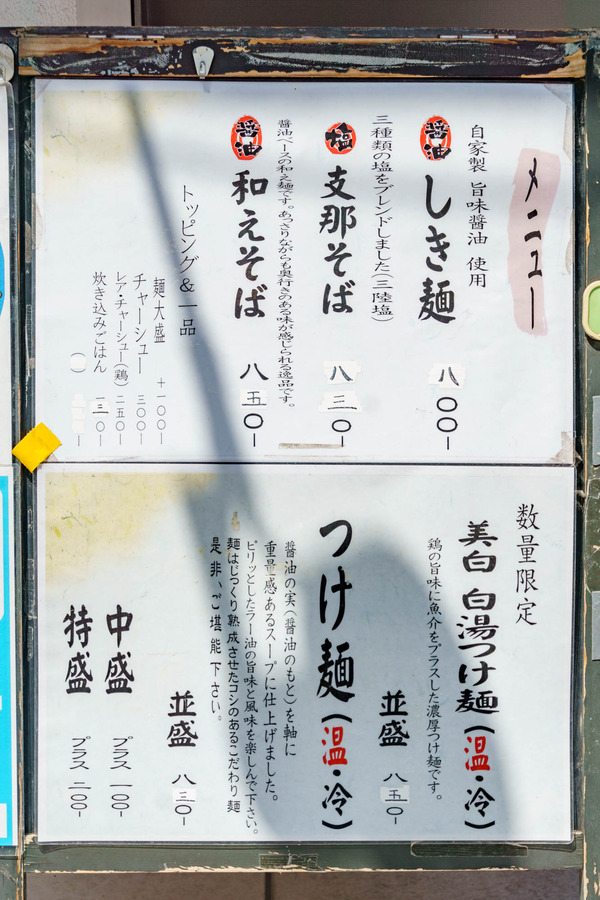 メニュー
自家製 旨味醤油 使用
醤油 しき麺 八〇〇-
三種類の塩をブレンドしました(三陸塩)
塩 支那そば 八三〇-
醤油ベースの和え麺です。あっさりながらも奥行きのある味が感じられる逸品です。
醤油 和えそば 八五〇-
トッピング&一品
麺大盛 +一〇〇-
チャーシュー 三〇〇-
レア・チャーシュー(鶏) 二五〇-
炊き込みごはん 一三〇-
数量限定
美白 白湯つけ麺(温・冷)
鶏の旨味に魚介をプラスした濃厚つけ麺です。
並盛 八五〇-
つけ麺(温・冷)
醤油の実(醤油のもと)を軸に
重量感あるスープに仕上げました。
ピリッとしたラー油の旨味と風味を楽しんで下さい。
麺はじっくり熟成させたコシのあるこだわり麺
是非、ご堪能下さい。
並盛 八三〇-
中盛 プラス 一〇〇-
特盛 プラス 二〇〇-